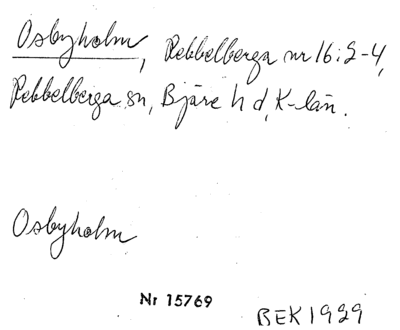 Osbyholm, Rebbelberga nr 16:2-4,
Rebbelberga sn, Bjäre hd, K-län.
Osbyholm
Nr 15769
BEK 1929